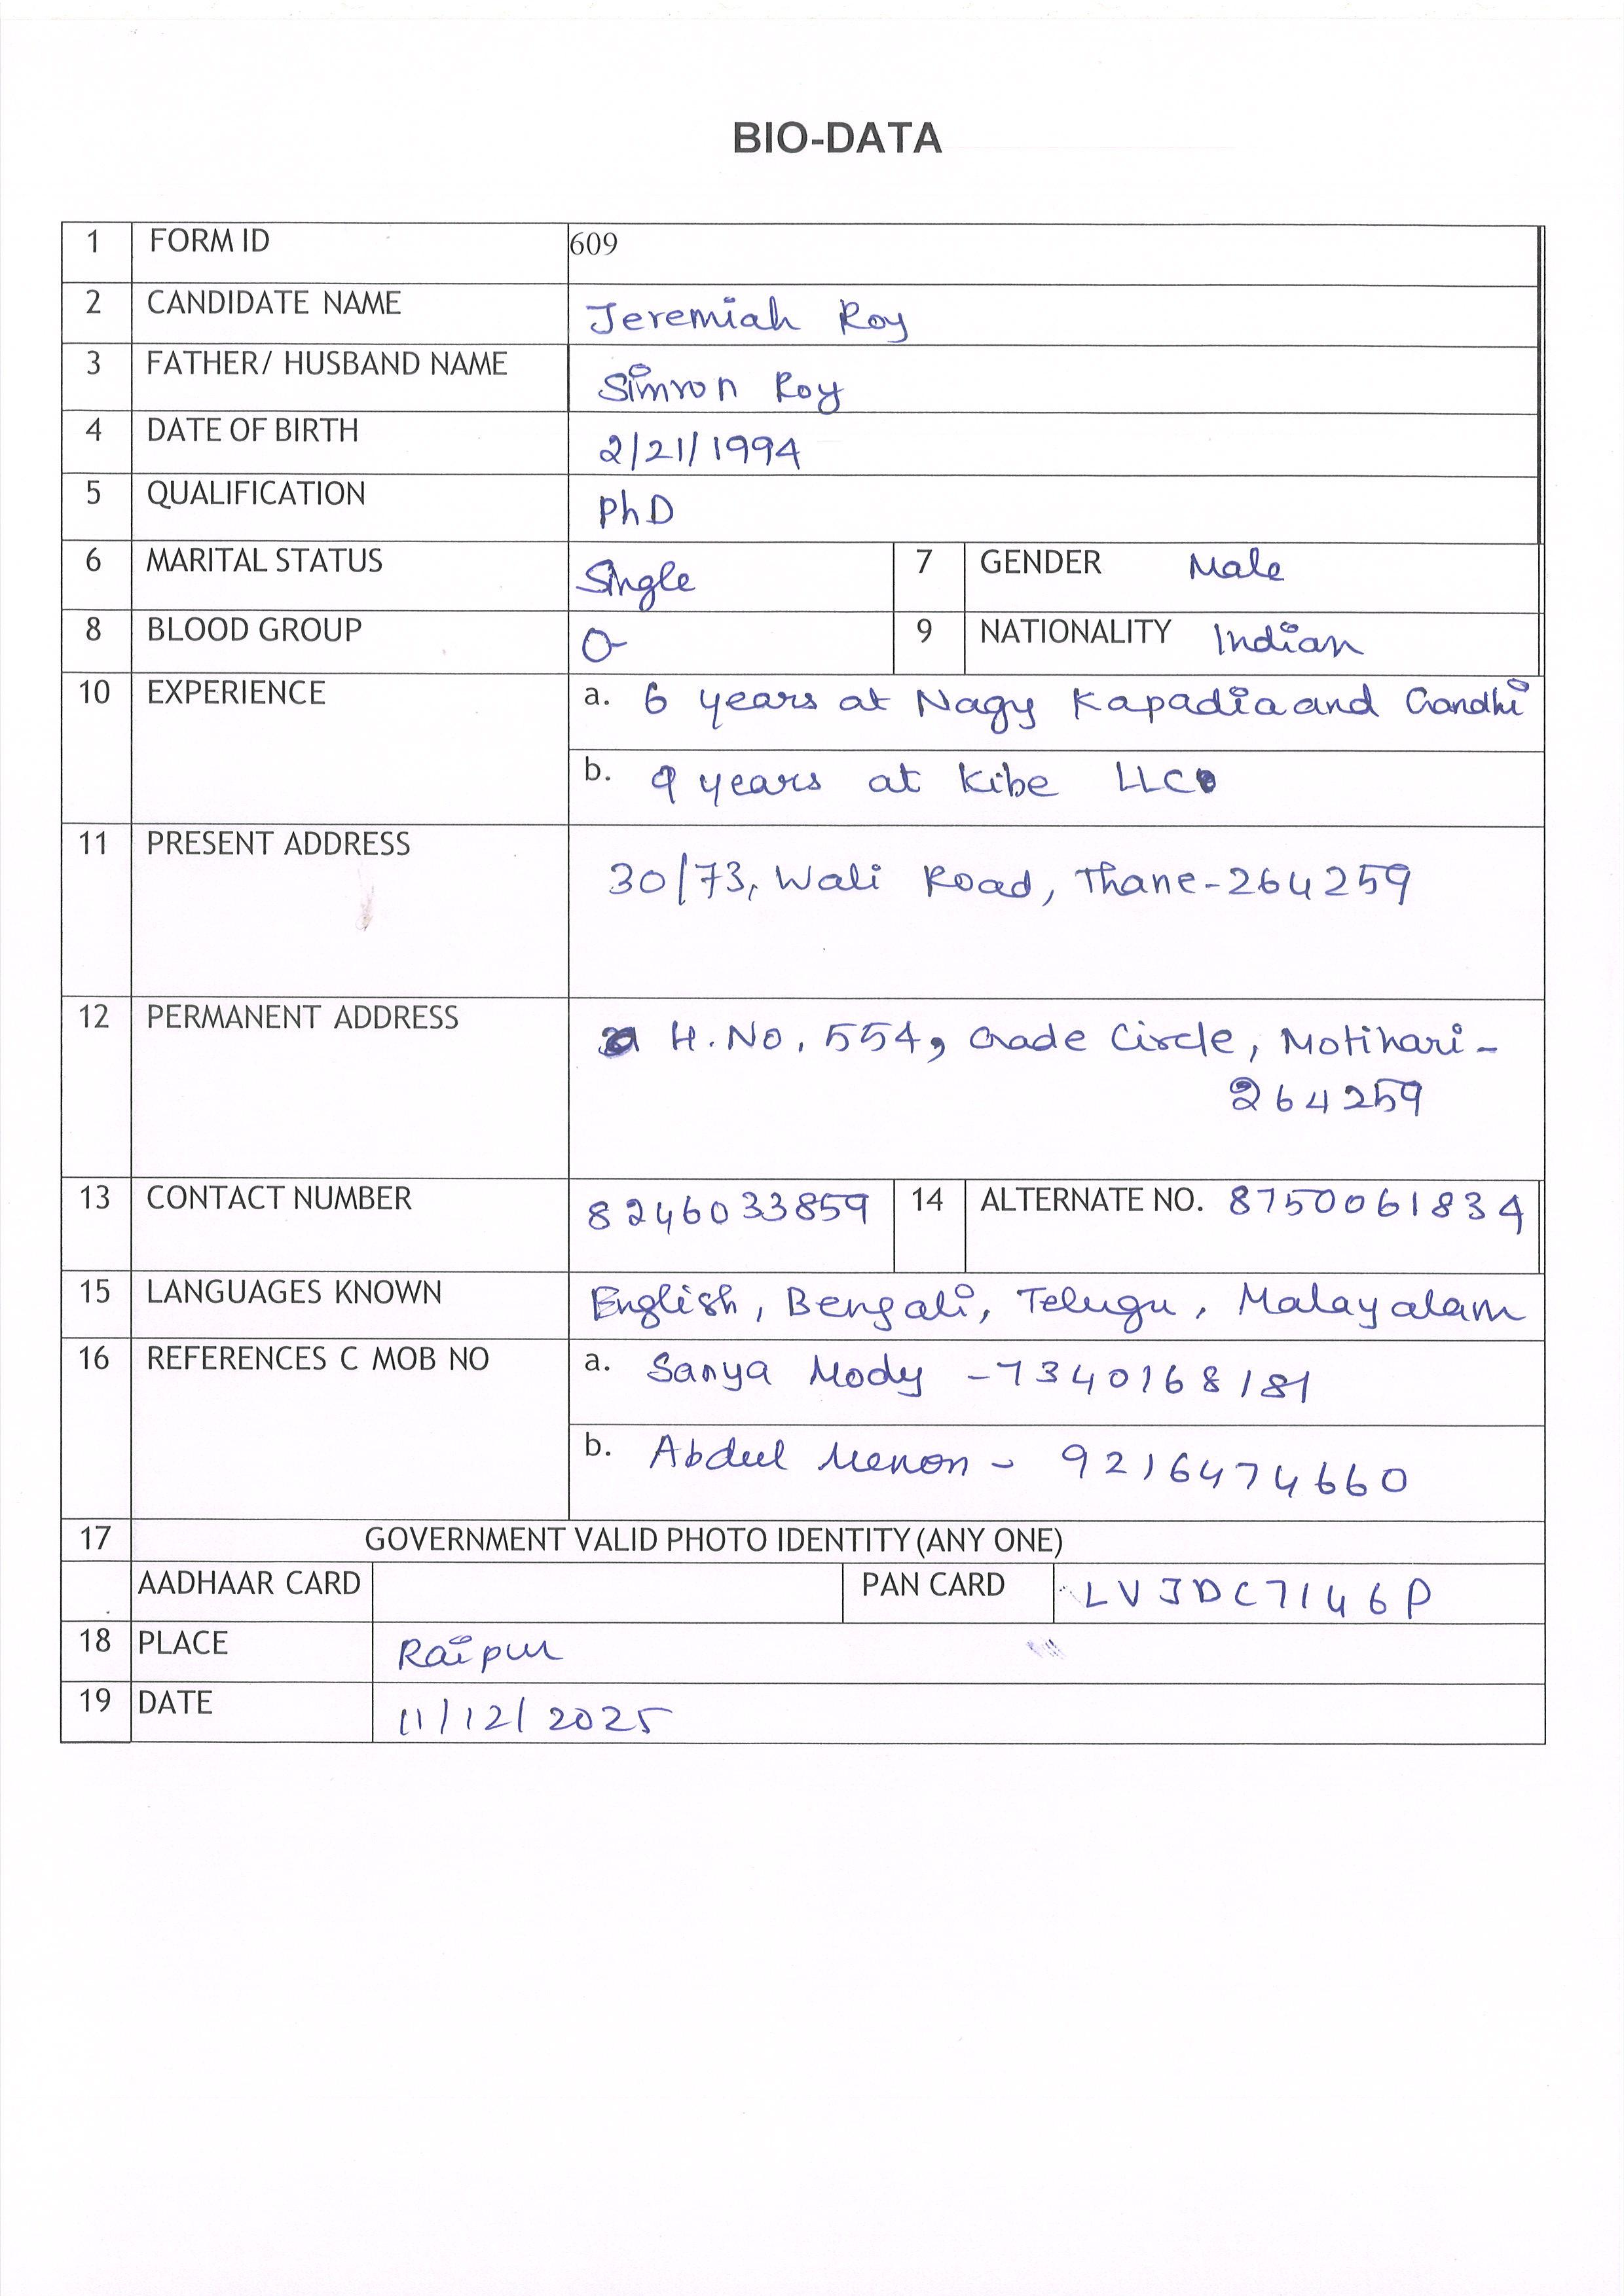 BIO-DATA
1 FORM ID 609
2 CANDIDATE NAME Jeremiah Roy
3 FATHER/ HUSBAND NAME Simron Roy
4 DATE OF BIRTH 2/21/1994
5 QUALIFICATION PhD
6 MARITAL STATUS Single 7 GENDER Male
8 BLOOD GROUP O- 9 NATIONALITY Indian
10 EXPERIENCE a. 6 years at Nagy Kapadia and Gandhi
b. 9 years at Kibe LLC
11 PRESENT ADDRESS 30/73, Wali Road, Thane-264259
12 PERMANENT ADDRESS H.No. 554, Gade Circle, Motihari-
264259
13 CONTACT NUMBER 8246033859 14 ALTERNATE NO. 8750061834
15 LANGUAGES KNOWN English, Bengali, Telugu, Malayalam
16 REFERENCES C MOB NO a. Sanya Mody -7340168181
b. Abdul Menon - 9216474660
17 GOVERNMENT VALID PHOTO IDENTITY (ANY ONE)
AADHAAR CARD PAN CARD LVJDC7146P
18 PLACE Raipur
19 DATE 11/12/2025